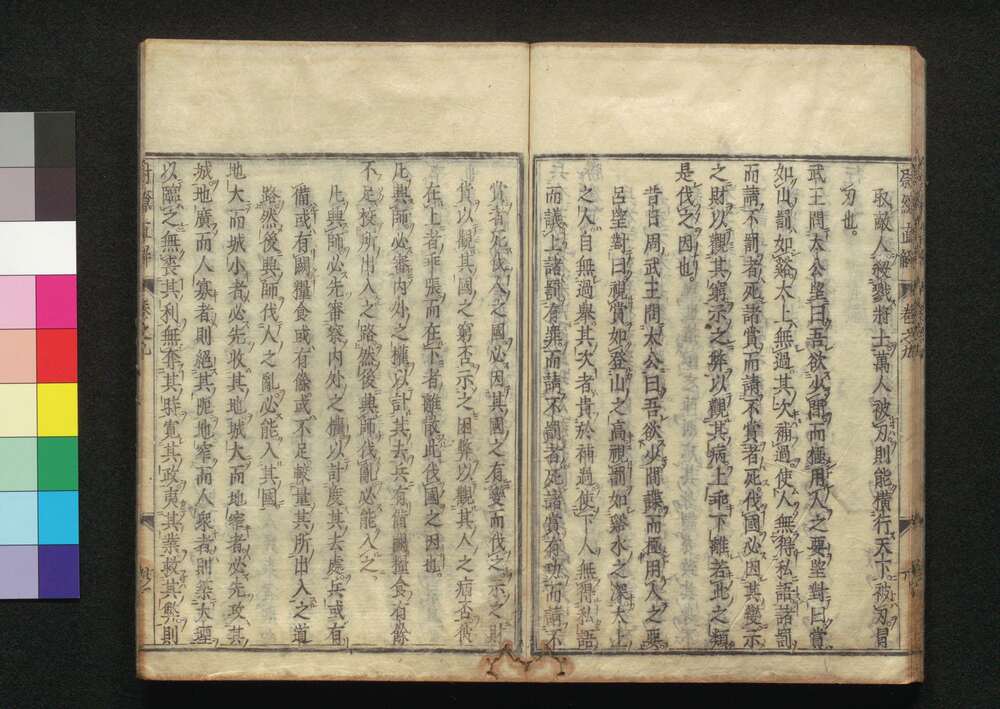 取敵人殺戮將士萬人被刃則能橫行天下被刃冐
刃也。
武王問太公望曰吾欲少間而極用人之要望對曰賞
如山罰如谿太上無過其次補過使人無得私語諸罰
而請不罰者死諸賞而請不賞者死伐國必因其變示
之財以觀其窮示之弊以觀其病上乖下離若此之類
是伐之因也
昔日周武王問太公曰吾欲少間謀而極用人之要
呂望對曰視賞如登山之高視罰如谿水之深太上
之人自無過舉其次者貴於補過使下人無得私語
而議上諸罰有罪而請不罰者死諸賞有功而請不
賞者死伐人之國必因其國之有變而伐之示之財
貨以觀其國之窮否示之困弊以觀其人之病否彼
在上者乖張而在下者離散此伐國之因也。
凡興師必審內外之權以計其去兵有備闕糧食有餘
不足校所出入之路然後興師伐亂必能入之
凡興師必先審察內外之權以計度其去處兵或有
備或有闕糧食或有餘或不足較量其所出入之道
路然後興師伐人之亂必能入其國
地大而城小者必先收其地城大而地窄者必先攻其
城地廣而人寡者則絕其阨地窄而人衆者則築大堙
以臨之無喪其利無奪其時寬其政夷其業救其弊則